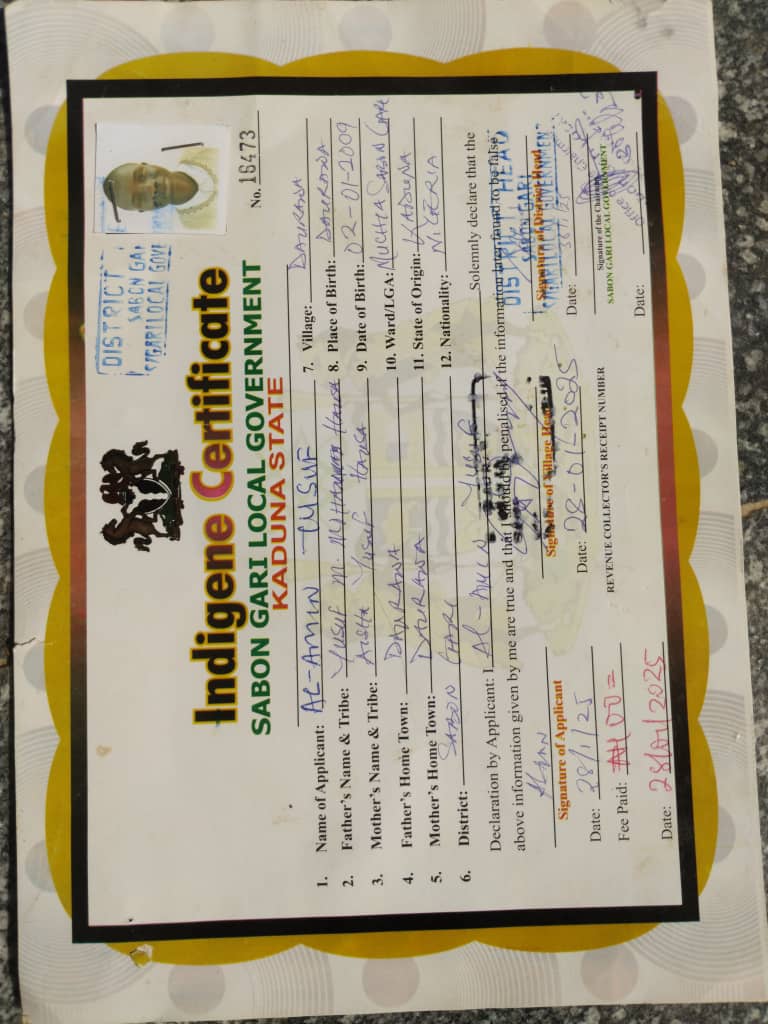 No. 16473
DISTRICT
SABON GARI
S/GARI LOCAL GOVT
Indigene Certificate
SABON GARI LOCAL GOVERNMENT
KADUNA STATE
1. Name of Applicant: AL-AMIN YUSUF
2. Father's Name & Tribe: YUSUF M. MUHAMMAD Hausa
3. Mother's Name & Tribe: AISHA YUSUF Hausa
4. Father's Home Town: DAURAWA
5. Mother's Home Town: DAURAWA
6. District: SABON GARI
7. Village: DAURAWA
8. Place of Birth: DAURAWA
9. Date of Birth: 02-01-2009
10. Ward/LGA: MUCHIA SABON GARI
11. State of Origin: KADUNA
12. Nationality: NIGERIA
Declaration by Applicant: I AL-AMIN YUSUF Solemnly declare that the
above information given by me are true and that I should be penalised if the information later found to be false.
DISTRICT HEAD
SABON GARI
S/GARI LOCAL GOVERNMENT
Signature of Applicant
Signature of Village Head
Signature of District Head
Signature of the Chairman
SABON GARI LOCAL GOVERNMENT
Date: 28/1/25
Date: 28-01-2025
Date:
Date:
Fee Paid: ₦100=
REVENUE COLLECTOR'S RECEIPT NUMBER
Date: 28/01/2025